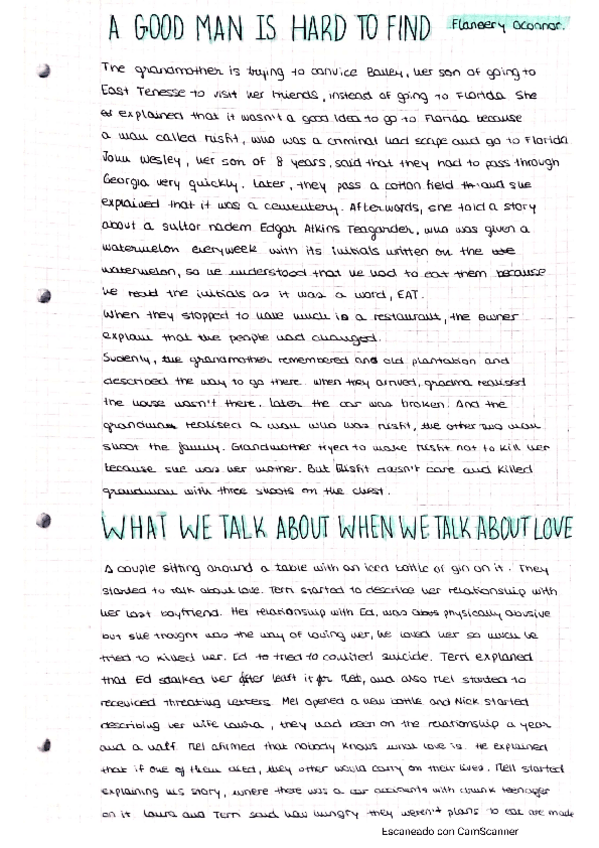 A GOOD MAN IS HARD TO FIND Flaneery Oconnor.
The grandmother is trying to convice Bailey, her son of going to
East Tenesse to visit her friends, instead of going to Florida She
explained that it wasn't a good idea to go to Florida because
a man called Misfit, who was a criminal had scape and go to Florida
John Wesley, her son of 8 years, said that they had to pass through
Georgia very quickly. Later, they pass a cotton field and she
explained that it was a cementery. Afterwords, she told a story
about a suitor nadem Edgar Atkins Teagander, who was given a
watermelon everyweek with its initials written on the
watermelon, so he understood that he had to eat them because
he read the initials as it was a word, EAT.
When they stopped to have lunch is a restaurant, the owner
explain that the people had changed.
Sudenly, the grandmother remembered and old plantation and
described the way to go there. When they arrived, grandma realised
the house wasn't there. Later the car was broken. And the
grandmam realised a man who was misfit, the other two man
shoot the family. Grandmother tryed to make misfit not to kill her
because she was her mother. But Misfit doesn't care and killed
grandmam with three shoots on the chest.
WHAT WE TALK ABOUT WHEN WE TALK ABOUT LOVE
A couple sitting around a table with an iced bottle of gin on it. They
started to talk about love. Terri started to describe her relationship with
her last boyfriend. Her relationship with Ed, was physically abusive
but she thought was the way of loving her, he loved her so much he
tried to killed her. Ed to tried to comited suicide. Terri explaned
that Ed stalked her after least it for Mel, and also Mel started to
receviced threating letters. Mel opened a new bottle and Nick started
describing her wife Laura, they had been on the relationship a year
and a half. Mel afirmed that nobody knows what love is. He explained
that if one of them died, they other would carry on their lives. Mell started
explaining his story, where there was a car accidents with drunk teenager
on it Laura and Terri said how hungry they weren't plans to eat are made
Escaneado con CamScanner